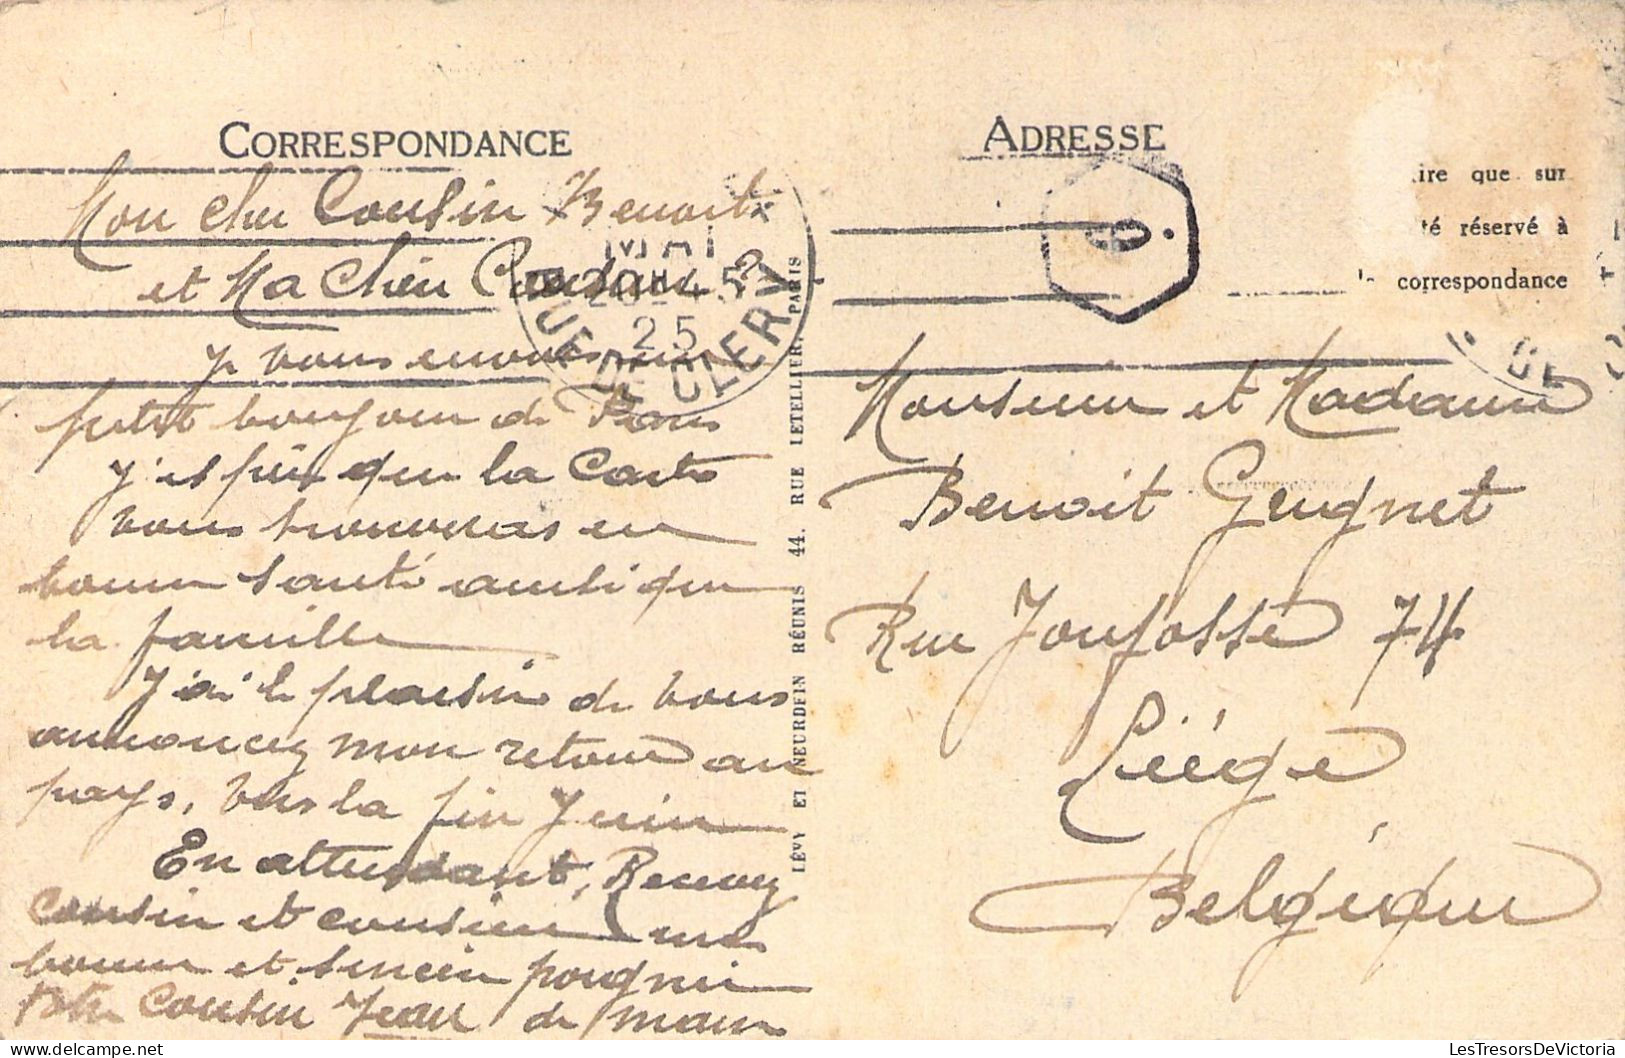 CORRESPONDANCE
Mon cher Cousin Benoit
et Ma Chèr Cousine
MAI
25
RUE DE CLERY
je vous envoies un
petit bonjour de Paris
J'espèr que la Carte
vous trouveras en
bonne santé ainsi que
la famille
J'ai le plaisir de vous
annoncez mon retour au
pays, vers la fin Juin
En attendant, Recevez
cousin et cousine une
bonne et sincèr poignée
votre Cousin Jean de main
LÉVY ET NEURDEIN RÉUNIS 44, RUE LETELLIER, PARIS
ADRESSE
6
ire que sur
té réservé à
correspondance
Monsieur et Madame
Benoit Geugnet
Rue Jonfosse 74
Liége
Belgique
LesTresorsDeVictoria